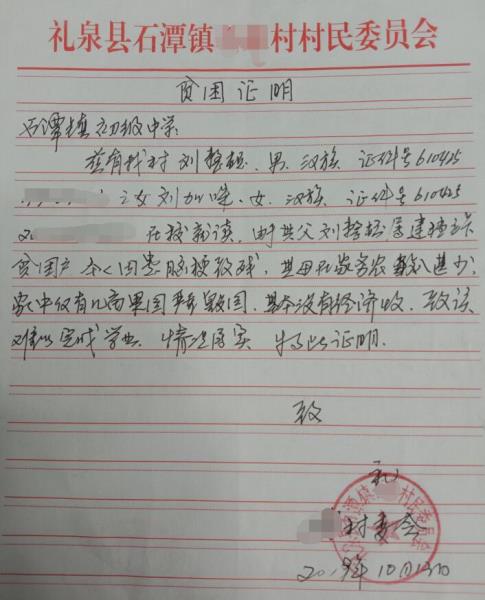 礼泉县石潭镇 村村民委员会
贫困证明
石潭镇初级中学:
兹有我村刘 ,男,汉族,证件号610425
之女刘加 ,女,汉族,证件号610425
2 在校就读,由于其父刘 属建档立卡
贫困户,本人因患脑梗致残,其母在家务农 收入甚少,
家中仅有几亩果园 园,基本没有经济收 ,致该
难以完成学业,情况属实 特此证明.
致
礼
石潭镇 村民委员会
村委会
2019年10月13日